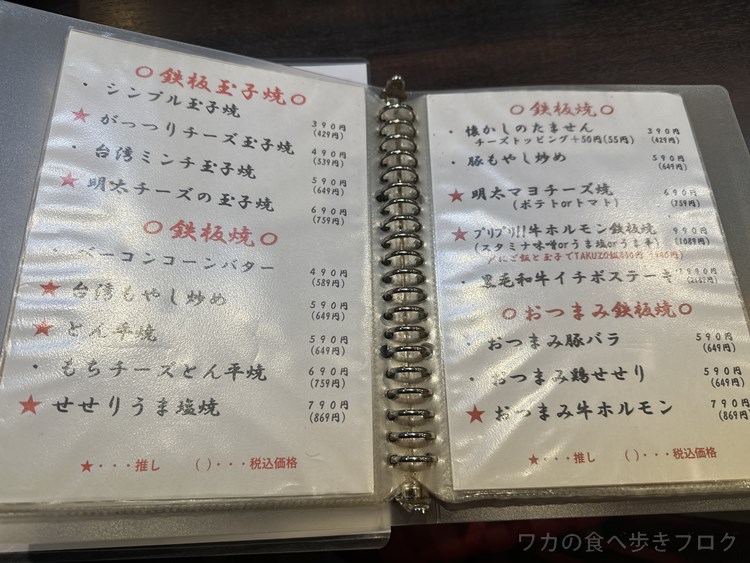 ○鉄板玉子焼○
・シンプル玉子焼 390円 (429円)
★がっつりチーズ玉子焼 490円 (539円)
・台湾ミンチ玉子焼 590円 (649円)
★明太チーズの玉子焼 690円 (759円)
○鉄板焼○
・ベーコンコーンバター 490円 (589円)
★台湾もやし炒め 590円 (649円)
★とん平焼 590円 (649円)
・もちチーズとん平焼 690円 (759円)
★せせりうま塩焼 790円 (869円)
★・・・推し ( )・・・税込価格
○鉄板焼○
・懐かしのたません 390円 (429円)
チーズトッピング+50円(55円)
・豚もやし炒め 590円 (649円)
★明太マヨチーズ焼 690円 (759円)
(ポテトorトマト)
★プリプリ!!牛ホルモン鉄板焼 990円 (1089円)
(スタミナ味噌orうま塩orうま辛)
にご飯と玉子でTAKUZO飯400円
・黒毛和牛イチボステーキ 1990円
○おつまみ鉄板焼○
・おつまみ豚バラ 590円 (649円)
・おつまみ鶏せせり 590円 (649円)
★おつまみ牛ホルモン 790円 (869円)
★・・・推し ( )・・・税込価格
ワカの食べ歩きブログ